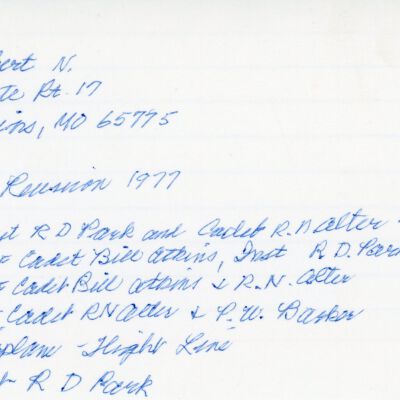 ert N.
te Rt. 17
ins, MO 65775
Reunion 1977
st R D Park and Cadet R. N Alter -
- Cadet Bill Atkins, Inst R. D. Par
- Cadet Bill Atkins & R. N. Alter
- Cadet R N Alter & P. W. Barker
plane - Flight Line
- R D Park